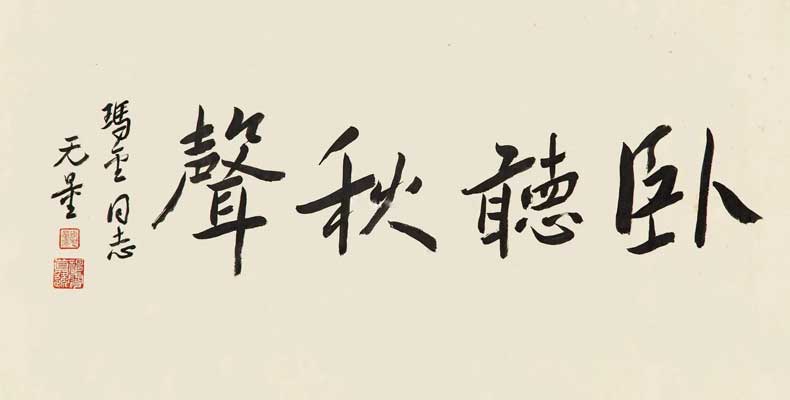 卧聽秋聲
瑪雲同志
无量